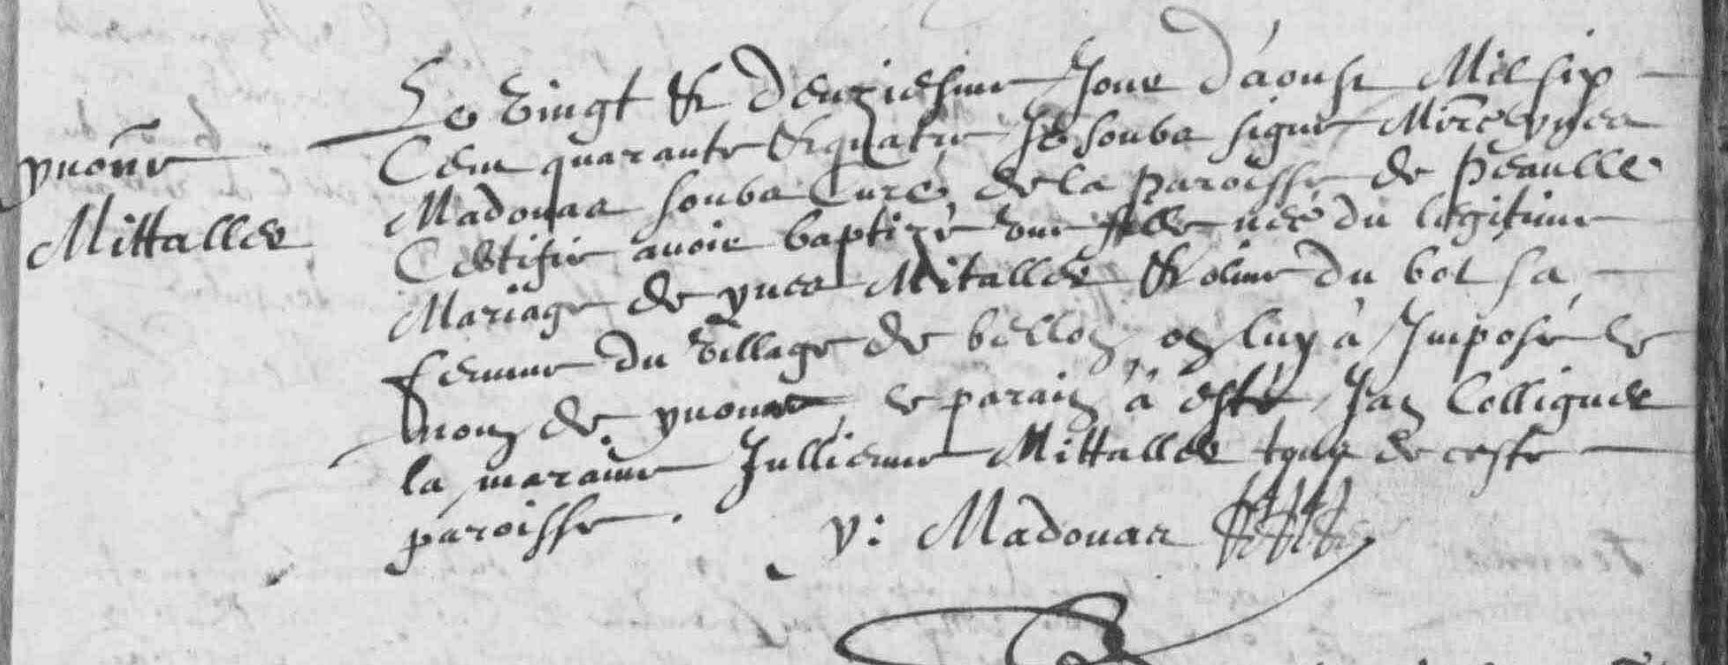 yuonne
Mittallec
Le Vingt & deuziesme Jour d'aoust Mil six
Cent quarante & quatre Je soubs signe Mire yues
Madouas soubs Curé de la paroisse de peaulle
Certifie auoir baptizé vne fille née du legitime
Mariage de yues Mitallec & oliue du bot sa
femme du Village de bellon on luy à Imposé le
nom de yuonne, le parain à esté Jan Colliguet
la maraine Jullienne Mittallec tous de ceste
paroisse.
y: Madouas